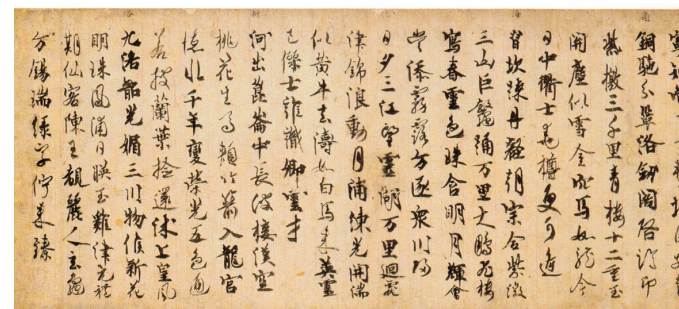 銅駝分鞏洛劔閣啓臨卭
紫徼三千里青樓十二重玉
關塵似雪金埒馬如龍今
日中衢士堯樽更可
海
習坎疎丹壑朝宗合紫微
三山巨鼇踊万里大鵬飛樓
寫春雲色珠含明月輝會
當添霧露方逐衆川歸
日夕三江望靈潮万里迴霞
津錦浪動月浦練光開湍
似黄牛去濤如白馬来英靈
已傑士誰識卿雲才
河出崑崙中長波接漢空
桃花生馬頬竹箭入龍宮
德水千年變榮光五色通
若披蘭葉撿還沐上皇風
洛
九洛韶光媚三川物候新花
明珠鳳浦日暎玉雞津元禮
期仙客陳王覩麗人玄龜
方錫瑞緑字佇来臻